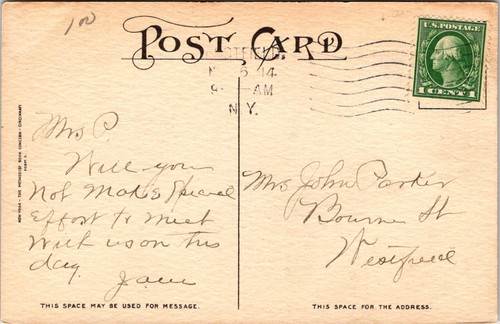 100
POST CARD
U.S. POSTAGE
1 CENT 1
14
AM
N.Y.
Mrs P.
Will you
not make special
effort to meet
with us on this
day.
Jane
Mrs John Parker
Bourne St
Westfield
THIS SPACE MAY BE USED FOR MESSAGE.
THIS SPACE IS FOR THE ADDRESS.